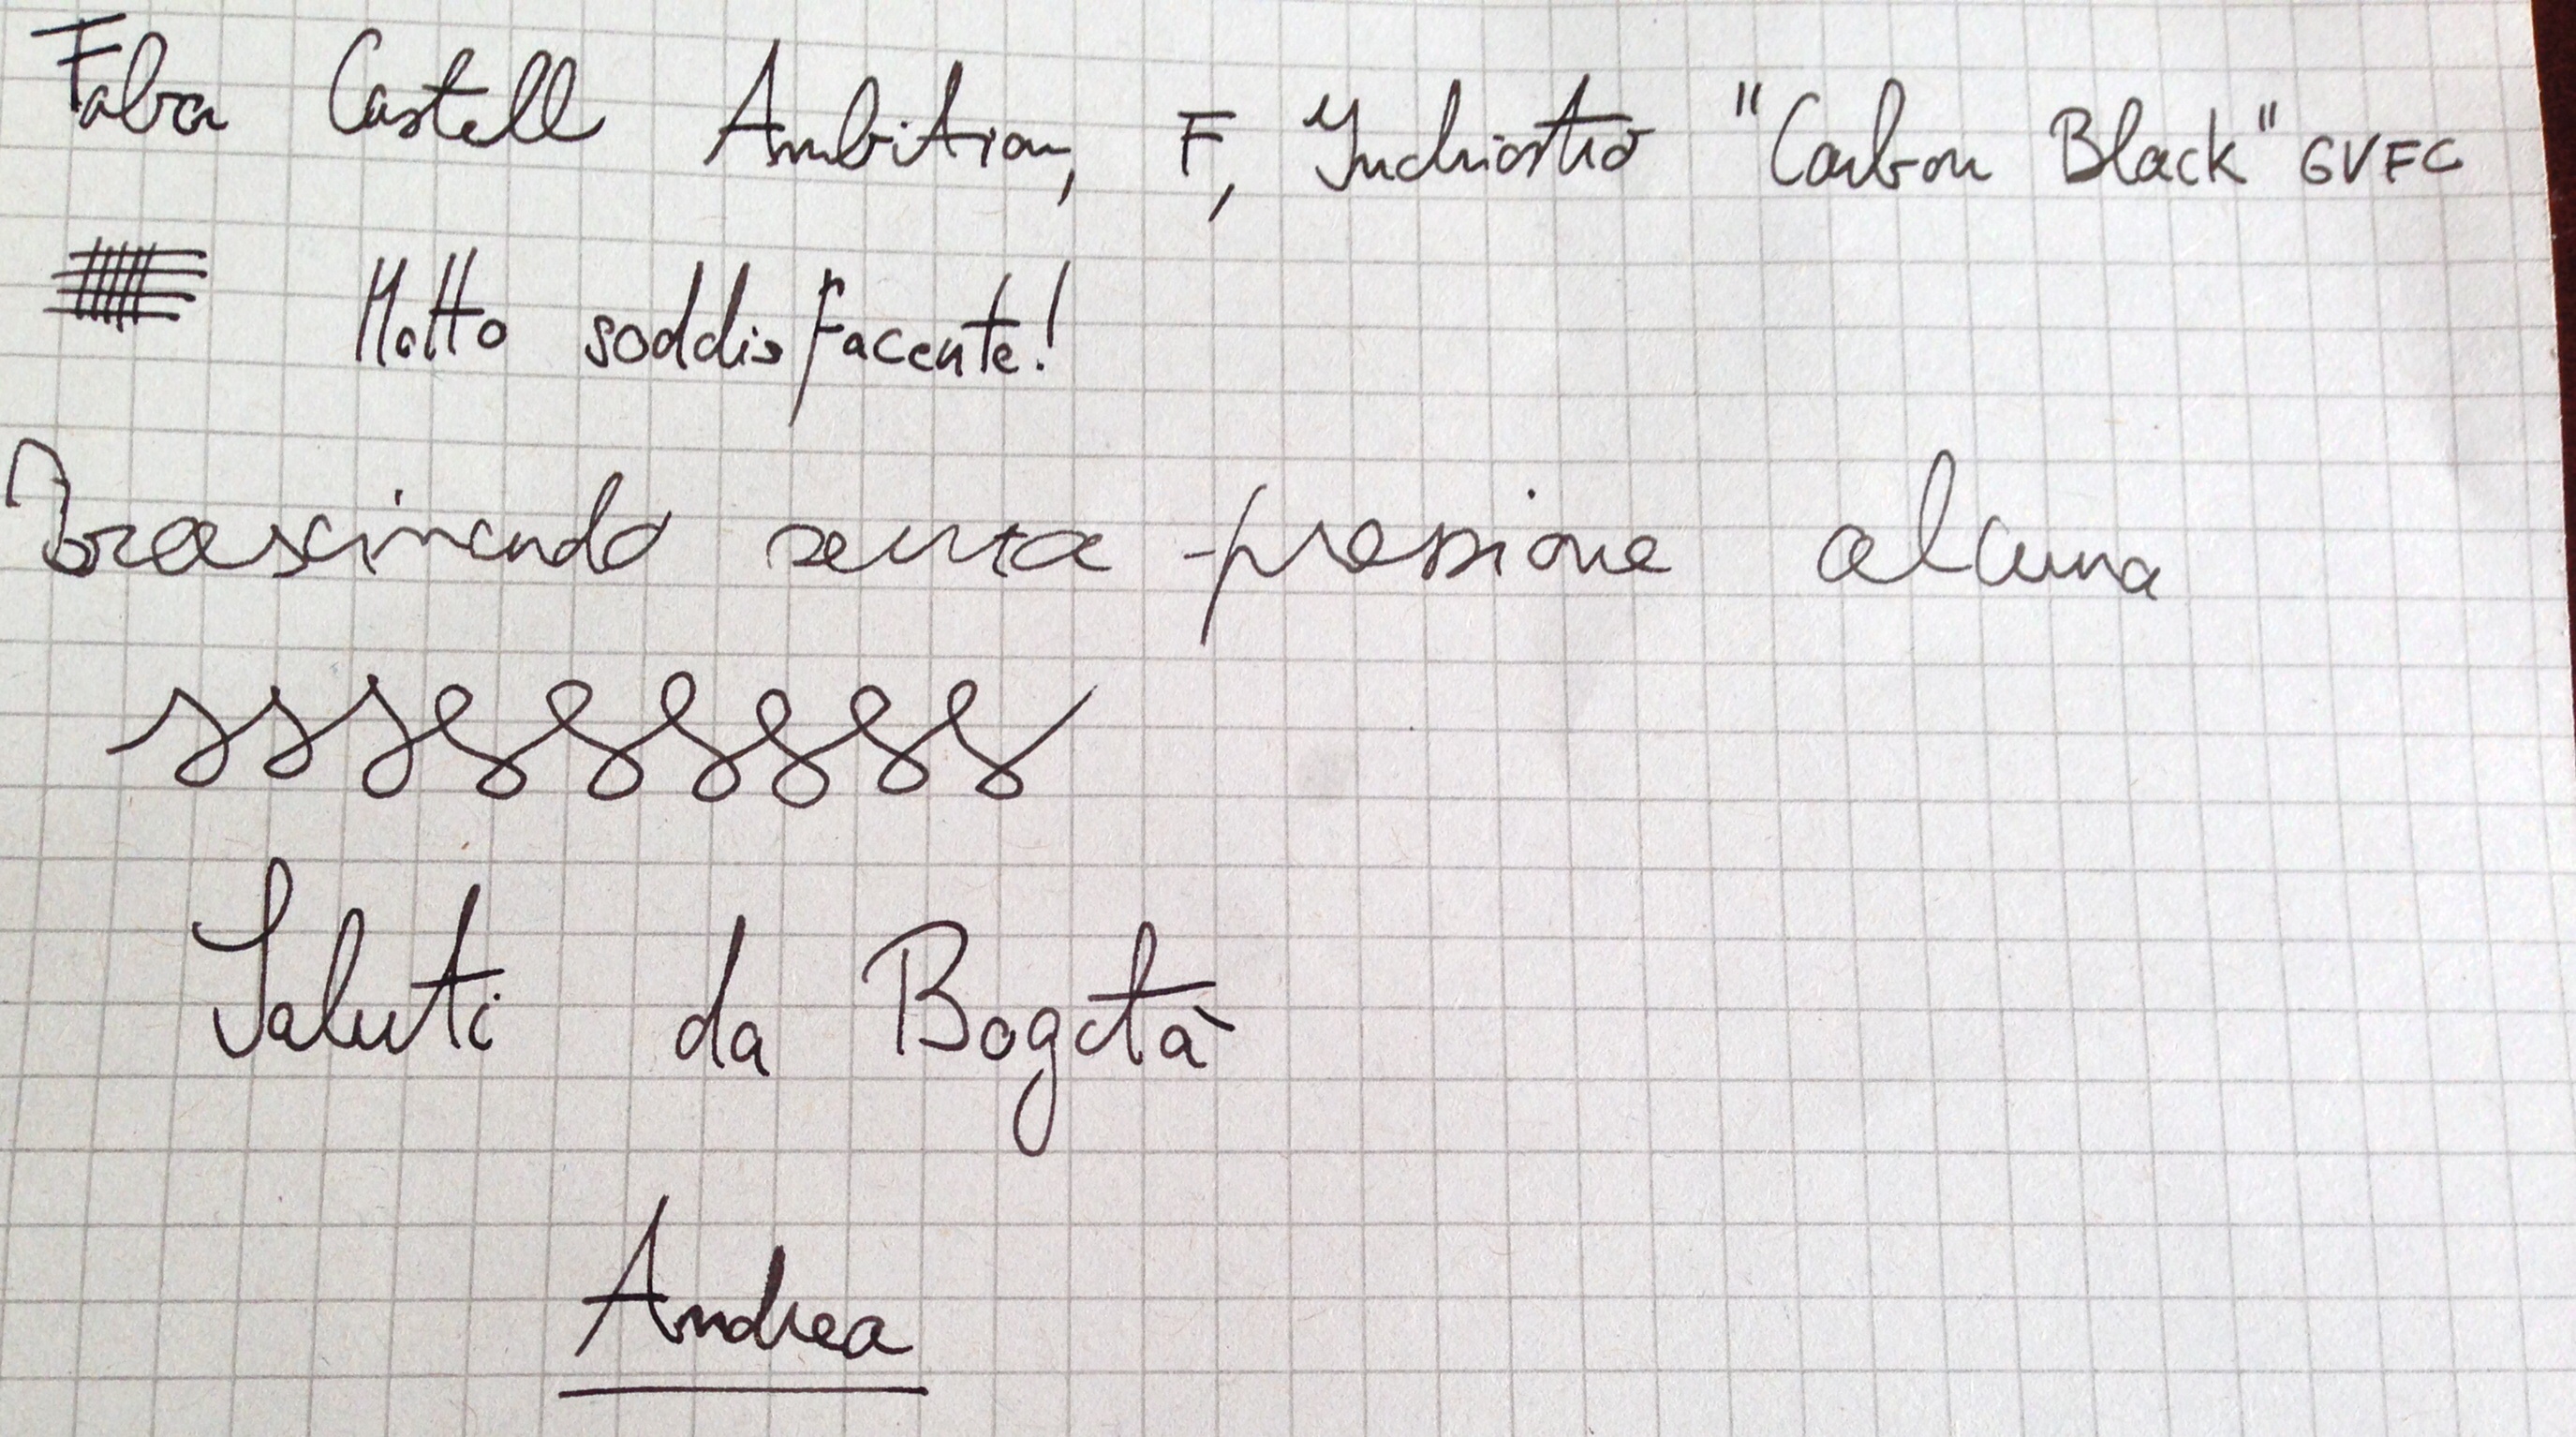 Faber Castell Ambition, F, Inchiostro "Carbon Black" GVFC
Molto soddisfacente!
Trascinando senza pressione alcuna
Saluti da Bogotà
Andrea